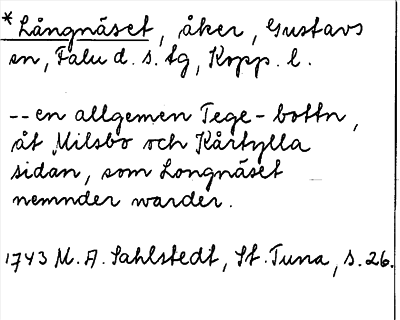 *Långnäset, åker, Gustavs
sn, Falu d.s. tg, Kopp. l.
-- en allgemen Tege-bottn,
åt Milsbo och Kårtylla
sidan, som Longnäset
nemnder warder.
1743 M. A. Sahlstedt, St. Tuna, s. 26.